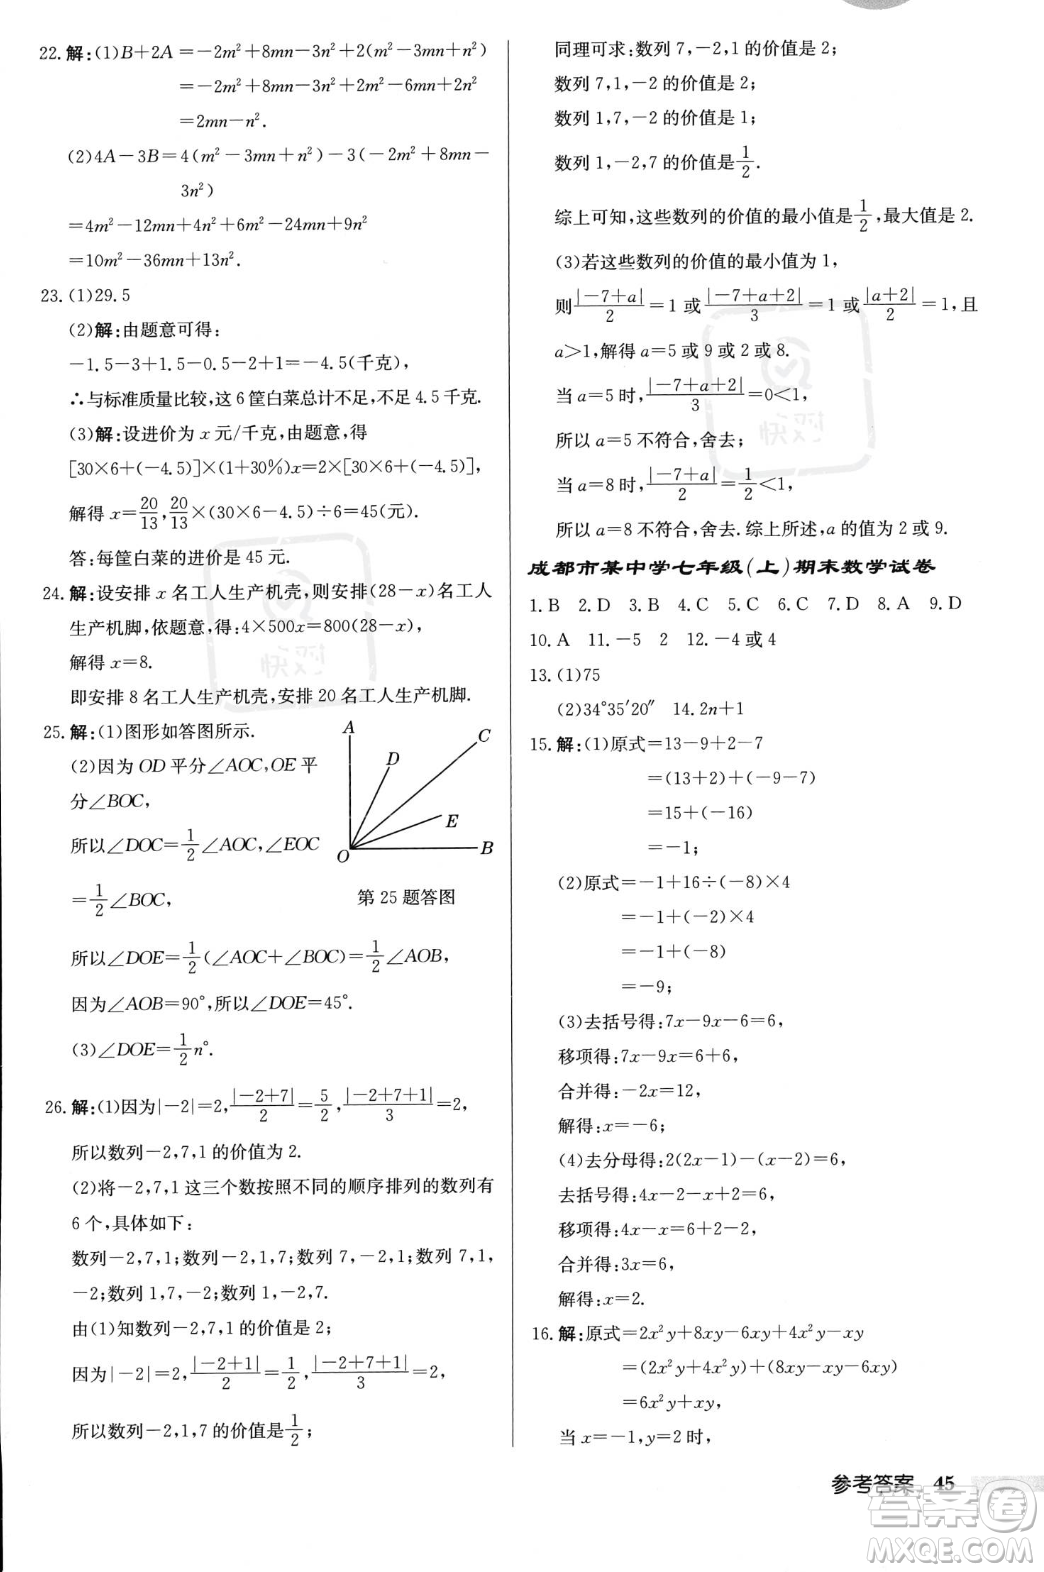 22. 解:(1)B+2A=-2m²+8mn-3n²+2(m²-3mn+n²)
=-2m²+8mn-3n²+2m²-6mn+2n²
=2mn-n².
(2)4A-3B=4(m²-3mn+n²)-3(-2m²+8mn-
3n²)
=4m²-12mn+4n²+6m²-24mn+9n²
=10m²-36mn+13n².
23. (1)29.5
(2)解:由题意可得:
-1.5-3+1.5-0.5-2+1=-4.5(千克),
∴与标准质量比较,这6筐白菜总计不足,不足4.5千克.
(3)解:设进价为x元/千克,由题意,得
[30×6+(-4.5)]×(1+30%)x=2×[30×6+(-4.5)],
解得x=20/13,20/13×(30×6-4.5)÷6=45(元).
答:每筐白菜的进价是45元.
24. 解:设安排x名工人生产机壳,则安排(28-x)名工人
生产机脚,依题意,得:4×500x=800(28-x),
解得x=8.
即安排8名工人生产机壳,安排20名工人生产机脚.
25. 解:(1)图形如答图所示.
(2)因为OD平分∠AOC,OE平
分∠BOC,
所以∠DOC=1/2∠AOC,∠EOC
=1/2∠BOC,
A
C
D
E
O
B
第25题答图
所以∠DOE=1/2(∠AOC+∠BOC)=1/2∠AOB,
因为∠AOB=90°,所以∠DOE=45°.
(3)∠DOE=1/2n°.
26. 解:(1)因为|-2|=2,|-2+7|/2=5/2,|-2+7+1|/3=2,
所以数列-2,7,1的价值为2.
(2)将-2,7,1这三个数按照不同的顺序排列的数列有
6个,具体如下:
数列-2,7,1;数列-2,1,7;数列7,-2,1;数列7,1,
-2;数列1,7,-2;数列1,-2,7.
由(1)知数列-2,7,1的价值是2;
因为|-2|=2,|-2+1|/2=1/2,|-2+7+1|/3=2,
所以数列-2,1,7的价值是1/2;
同理可求:数列7,-2,1的价值是2;
数列7,1,-2的价值是2;
数列1,7,-2的价值是1;
数列1,-2,7的价值是1/2.
综上可知,这些数列的价值的最小值是1/2,最大值是2.
(3)若这些数列的价值的最小值为1,
则|-7+a|/2=1或|-7+a+2|/3=1或|a+2|/2=1,且
a>1,解得a=5或9或2或8.
当a=5时,|-7+a+2|/3=0<1,
所以a=5不符合,舍去;
当a=8时,|-7+a|/2=1/2<1,
所以a=8不符合,舍去.综上所述,a的值为2或9.
成都市某中学七年级(上)期末数学试卷
1. B 2. D 3. B 4. C 5. C 6. C 7. D 8. A 9. D
10. A 11. -5 2 12. -4或4
13. (1)75
(2)34°35′20″ 14. 2n+1
15. 解:(1)原式=13-9+2-7
=(13+2)+(-9-7)
=15+(-16)
=-1;
(2)原式=-1+16÷(-8)×4
=-1+(-2)×4
=-1+(-8)
=-9;
(3)去括号得:7x-9x-6=6,
移项得:7x-9x=6+6,
合并得:-2x=12,
解得:x=-6;
(4)去分母得:2(2x-1)-(x-2)=6,
去括号得:4x-2-x+2=6,
移项得:4x-x=6+2-2,
合并得:3x=6,
解得:x=2.
16. 解:原式=2x²y+8xy-6xy+4x²y-xy
=(2x²y+4x²y)+(8xy-6xy-xy)
=6x²y+xy,
当x=-1,y=2时,
参考答案 45
快对
快对
答案卷
MXQE.COM